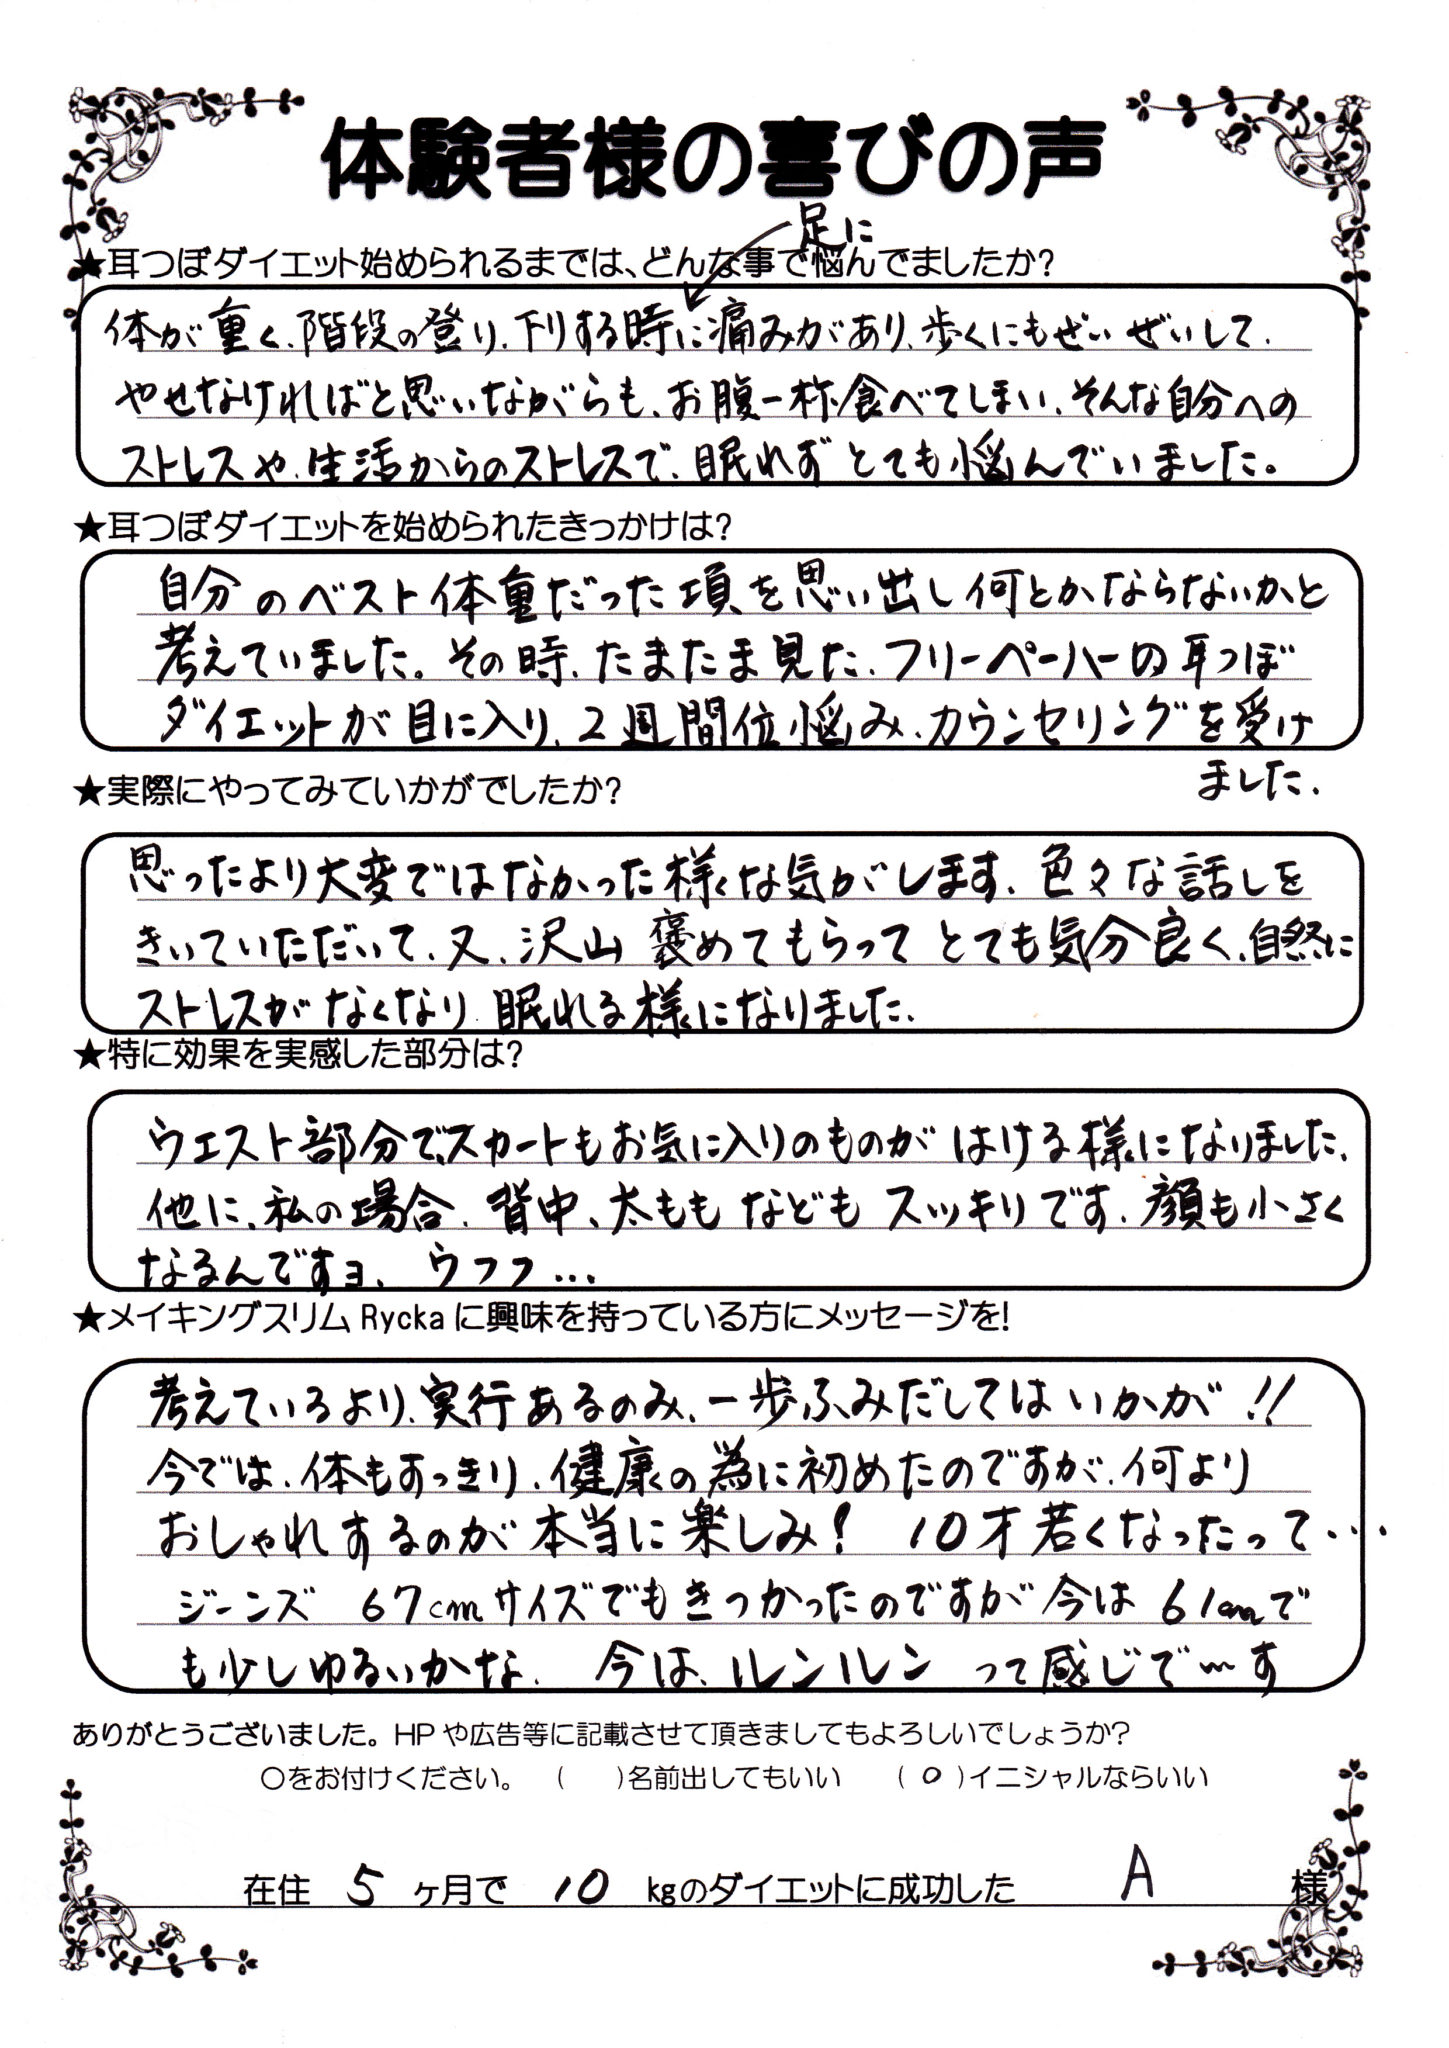 体験者様の喜びの声
★耳つぼダイエット始められるまでは、どんな事で悩んでましたか?
足に
体が重く、階段の登り、下りする時に痛みがあり、歩くにもぜいぜいして、
やせなければと思いながらも、お腹一杯食べてしまい、そんな自分への
ストレスや、生活からのストレスで、眠れずとても悩んでいました。
★耳つぼダイエットを始められたきっかけは?
自分のベスト体重だった頃を思い出し何とかならないかと
考えていました。その時、たまたま見た、フリーペーパーの耳つぼ
ダイエットが目に入り、2週間位悩み、カウンセリングを受け
ました、
★実際にやってみていかがでしたか?
思ったより大変ではなかった様な気がします、色々な話しを
きいていただいて、又、沢山褒めてもらってとても気分良く、自然に
ストレスがなくなり眠れる様になりました、
★特に効果を実感した部分は?
ウエスト部分で、スカートもお気に入りのものがはける様になりました、
他に、私の場合、背中、太ももなどもスッキリです、顔も小さく
なるんですョ、ウフフ…
★メイキングスリムRyckaに興味を持っている方にメッセージを!
考えているより、実行あるのみ、一歩ふみだしてはいかが!!
今では、体もすっきり、健康の為に初めたのですが、何より
おしゃれするのが本当に楽しみ! 10才若くなったって…
ジーンズ 67cmサイズでもきつかったのですが今は61cmで
も少しゆるいかな、 今は、ルンルンって感じで〜す
ありがとうございました。HPや広告等に記載させて頂きましてもよろしいでしょうか?
○をお付けください。 ( )名前出してもいい (○)イニシャルならいい
在住 5ヶ月で 10 kgのダイエットに成功した A 様